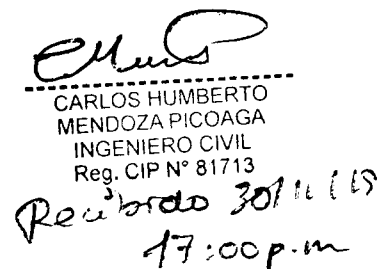 CARLOS HUMBERTO
MENDOZA PICOAGA
INGENIERO CIVIL
Reg. CIP N° 81713
Recibido 30/11/15
17:00 p.m